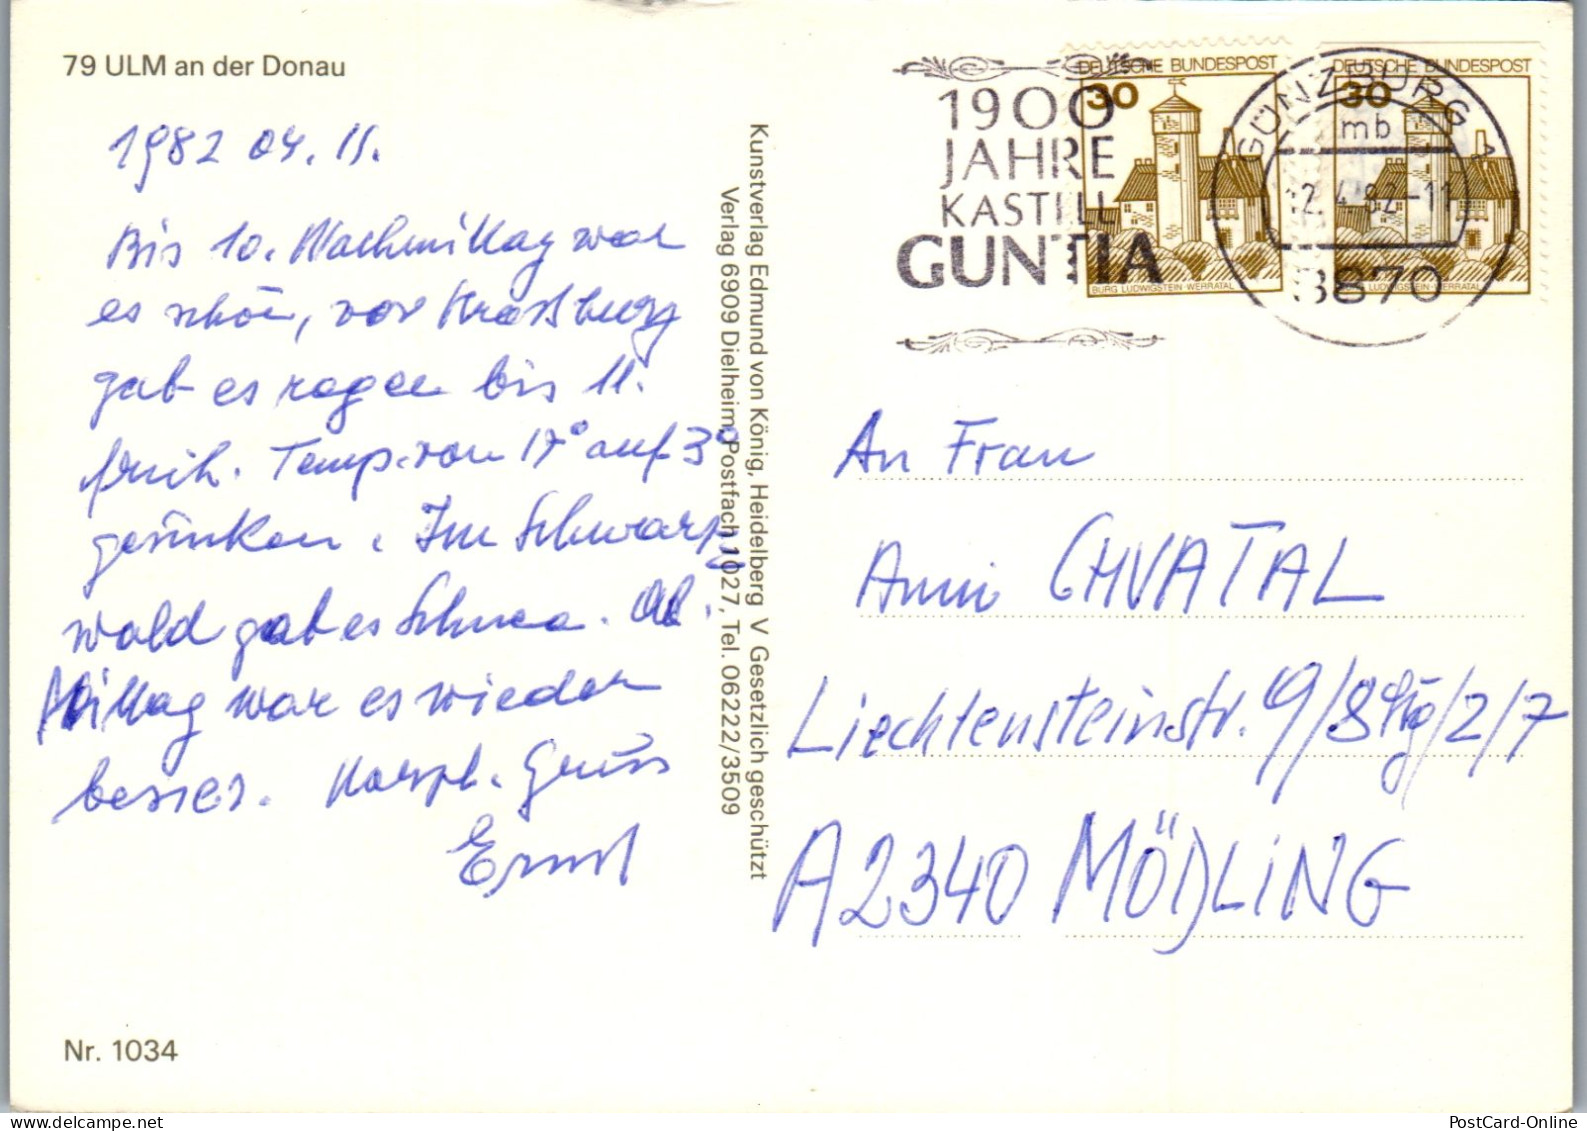 79 ULM an der Donau
1982 04. 11.
Bis 10. Nachmittag war
es schön, vor Straßburg
gab es regen bis 11.
früh. Temp. von 17° auf 3°
gesunken. Im Schwarz
wald gab es Schnee. Ab.
Mittag war es wieder
besser. Herzl. Gruss
Ernst
Nr. 1034
Kunstverlag Edmund von König, Heidelberg V Gesetzlich geschützt
Verlag 6909 Dielheim, Postfach 1027, Tel. 06222/3509
1900
JAHRE
KASTELL
GUNTIA
DEUTSCHE BUNDESPOST
30
BURG LUDWIGSTEIN · WERRATAL
DEUTSCHE BUNDESPOST
30
LUDWIGSTEIN · WERRATAL
GÜNZBURG 1
mb
12.4.82-11
8870
An Frau
Anni CHVATAL
Liechtensteinstr. 9/8 Stg/2/7
A2340 MÖDLING
PostCard-Online